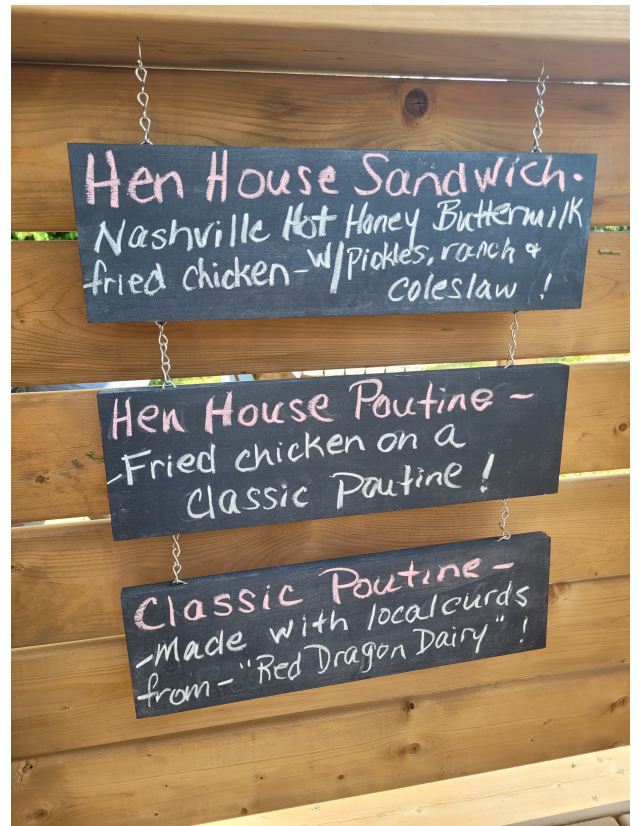 Hen House Sandwich-
Nashville Hot Honey Buttermilk
fried chicken - w/pickles, ranch &
coleslaw !
Hen House Poutine -
-Fried chicken on a
classic Poutine !
Classic Poutine -
-Made with local curds
from - "Red Dragon Dairy" !